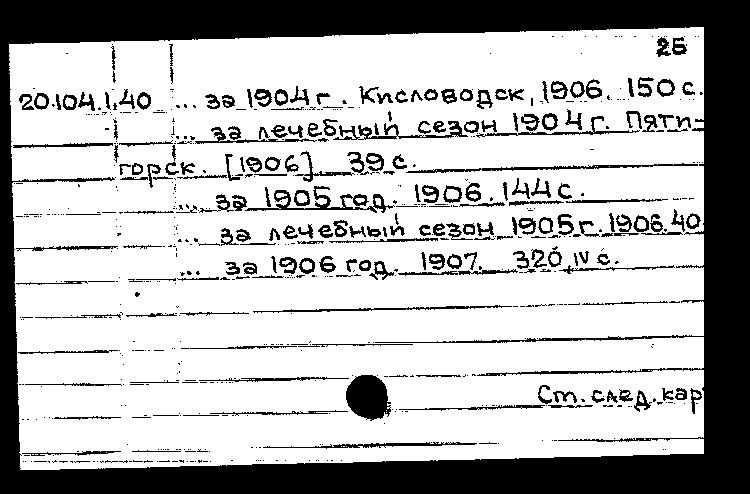 25
20.104.1.40 ... за 1904 г. Кисловодск, 1906. 150 с.
... за лечебный сезон 1904 г. Пяти-
горск. [1906]. 39 с.
... за 1905 год. 1906. 144 с.
... за лечебный сезон 1905 г. 1906. 40
... за 1906 год. 1907. 320, IV с.
См. след. кар